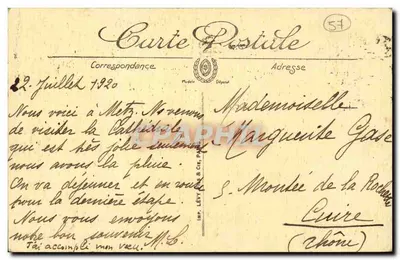 57
Carte Postale
Correspondance
Adresse
Modèle Déposé
22 Juillet 1920
Nous voici à Metz. Ns venons
de visiter la Cathédrale
qui est très jolie seulement
nous avons la pluie.
On va déjeuner et en route
pour la dernière étape.
Nous vous envoyons
notre bon souvenir M.C.
J'ai accompli mon vœu.
IMP. LÉVY & CIE, PA
Mademoiselle
Marguerite Gase
5 Montée de la
Cuire
(Rhône)